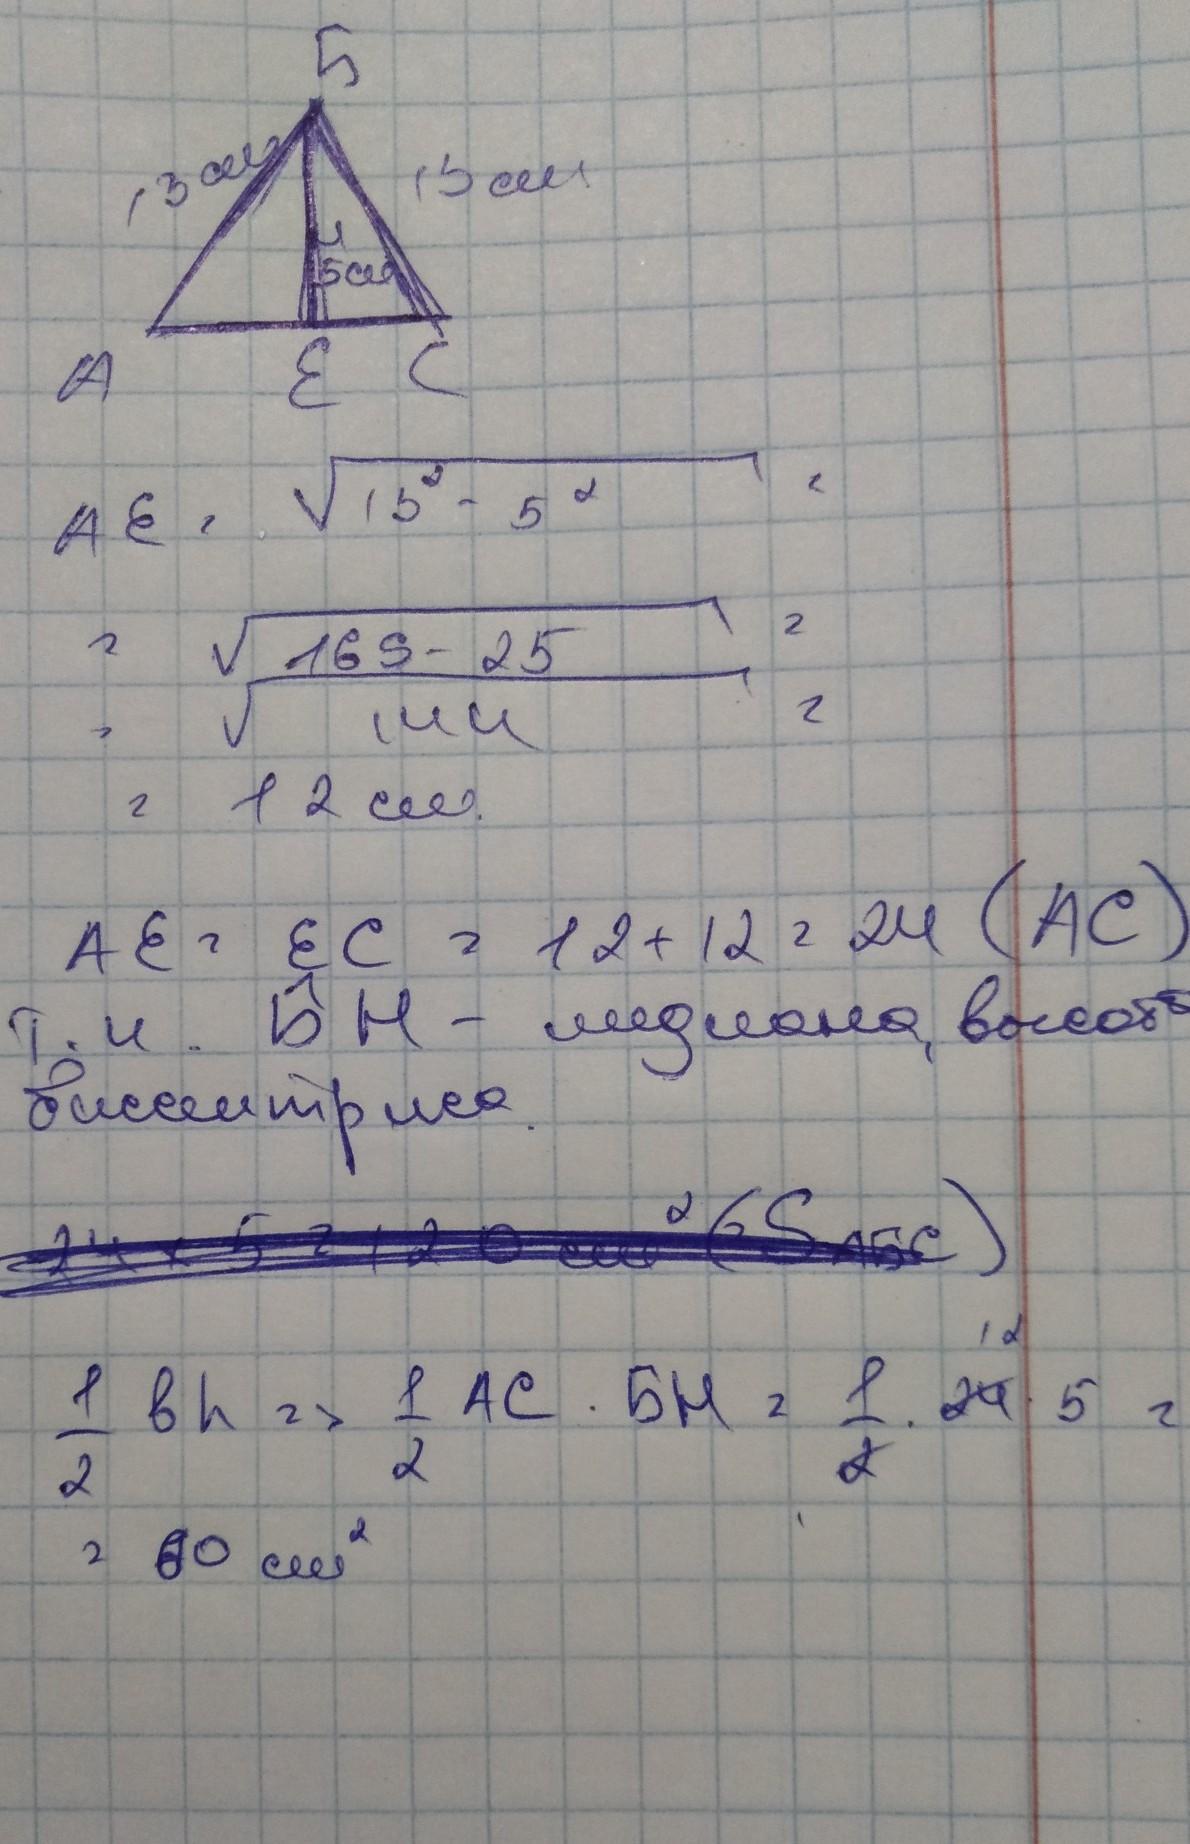 Б
13 см 13 см
5см
А Е С
АЕ = √13² - 5² =
= √169 - 25 =
= √144 =
= 12 см.
АЕ = ЕС = 12 + 12 = 24 (АС)
т.к. БН - медиана, высота
биссектриса.
24 × 5 = 120 см² (SАБС)
1/2 bh => 1/2 АС · БН = 1/2 · 24 · 5 =
12
= 60 см²